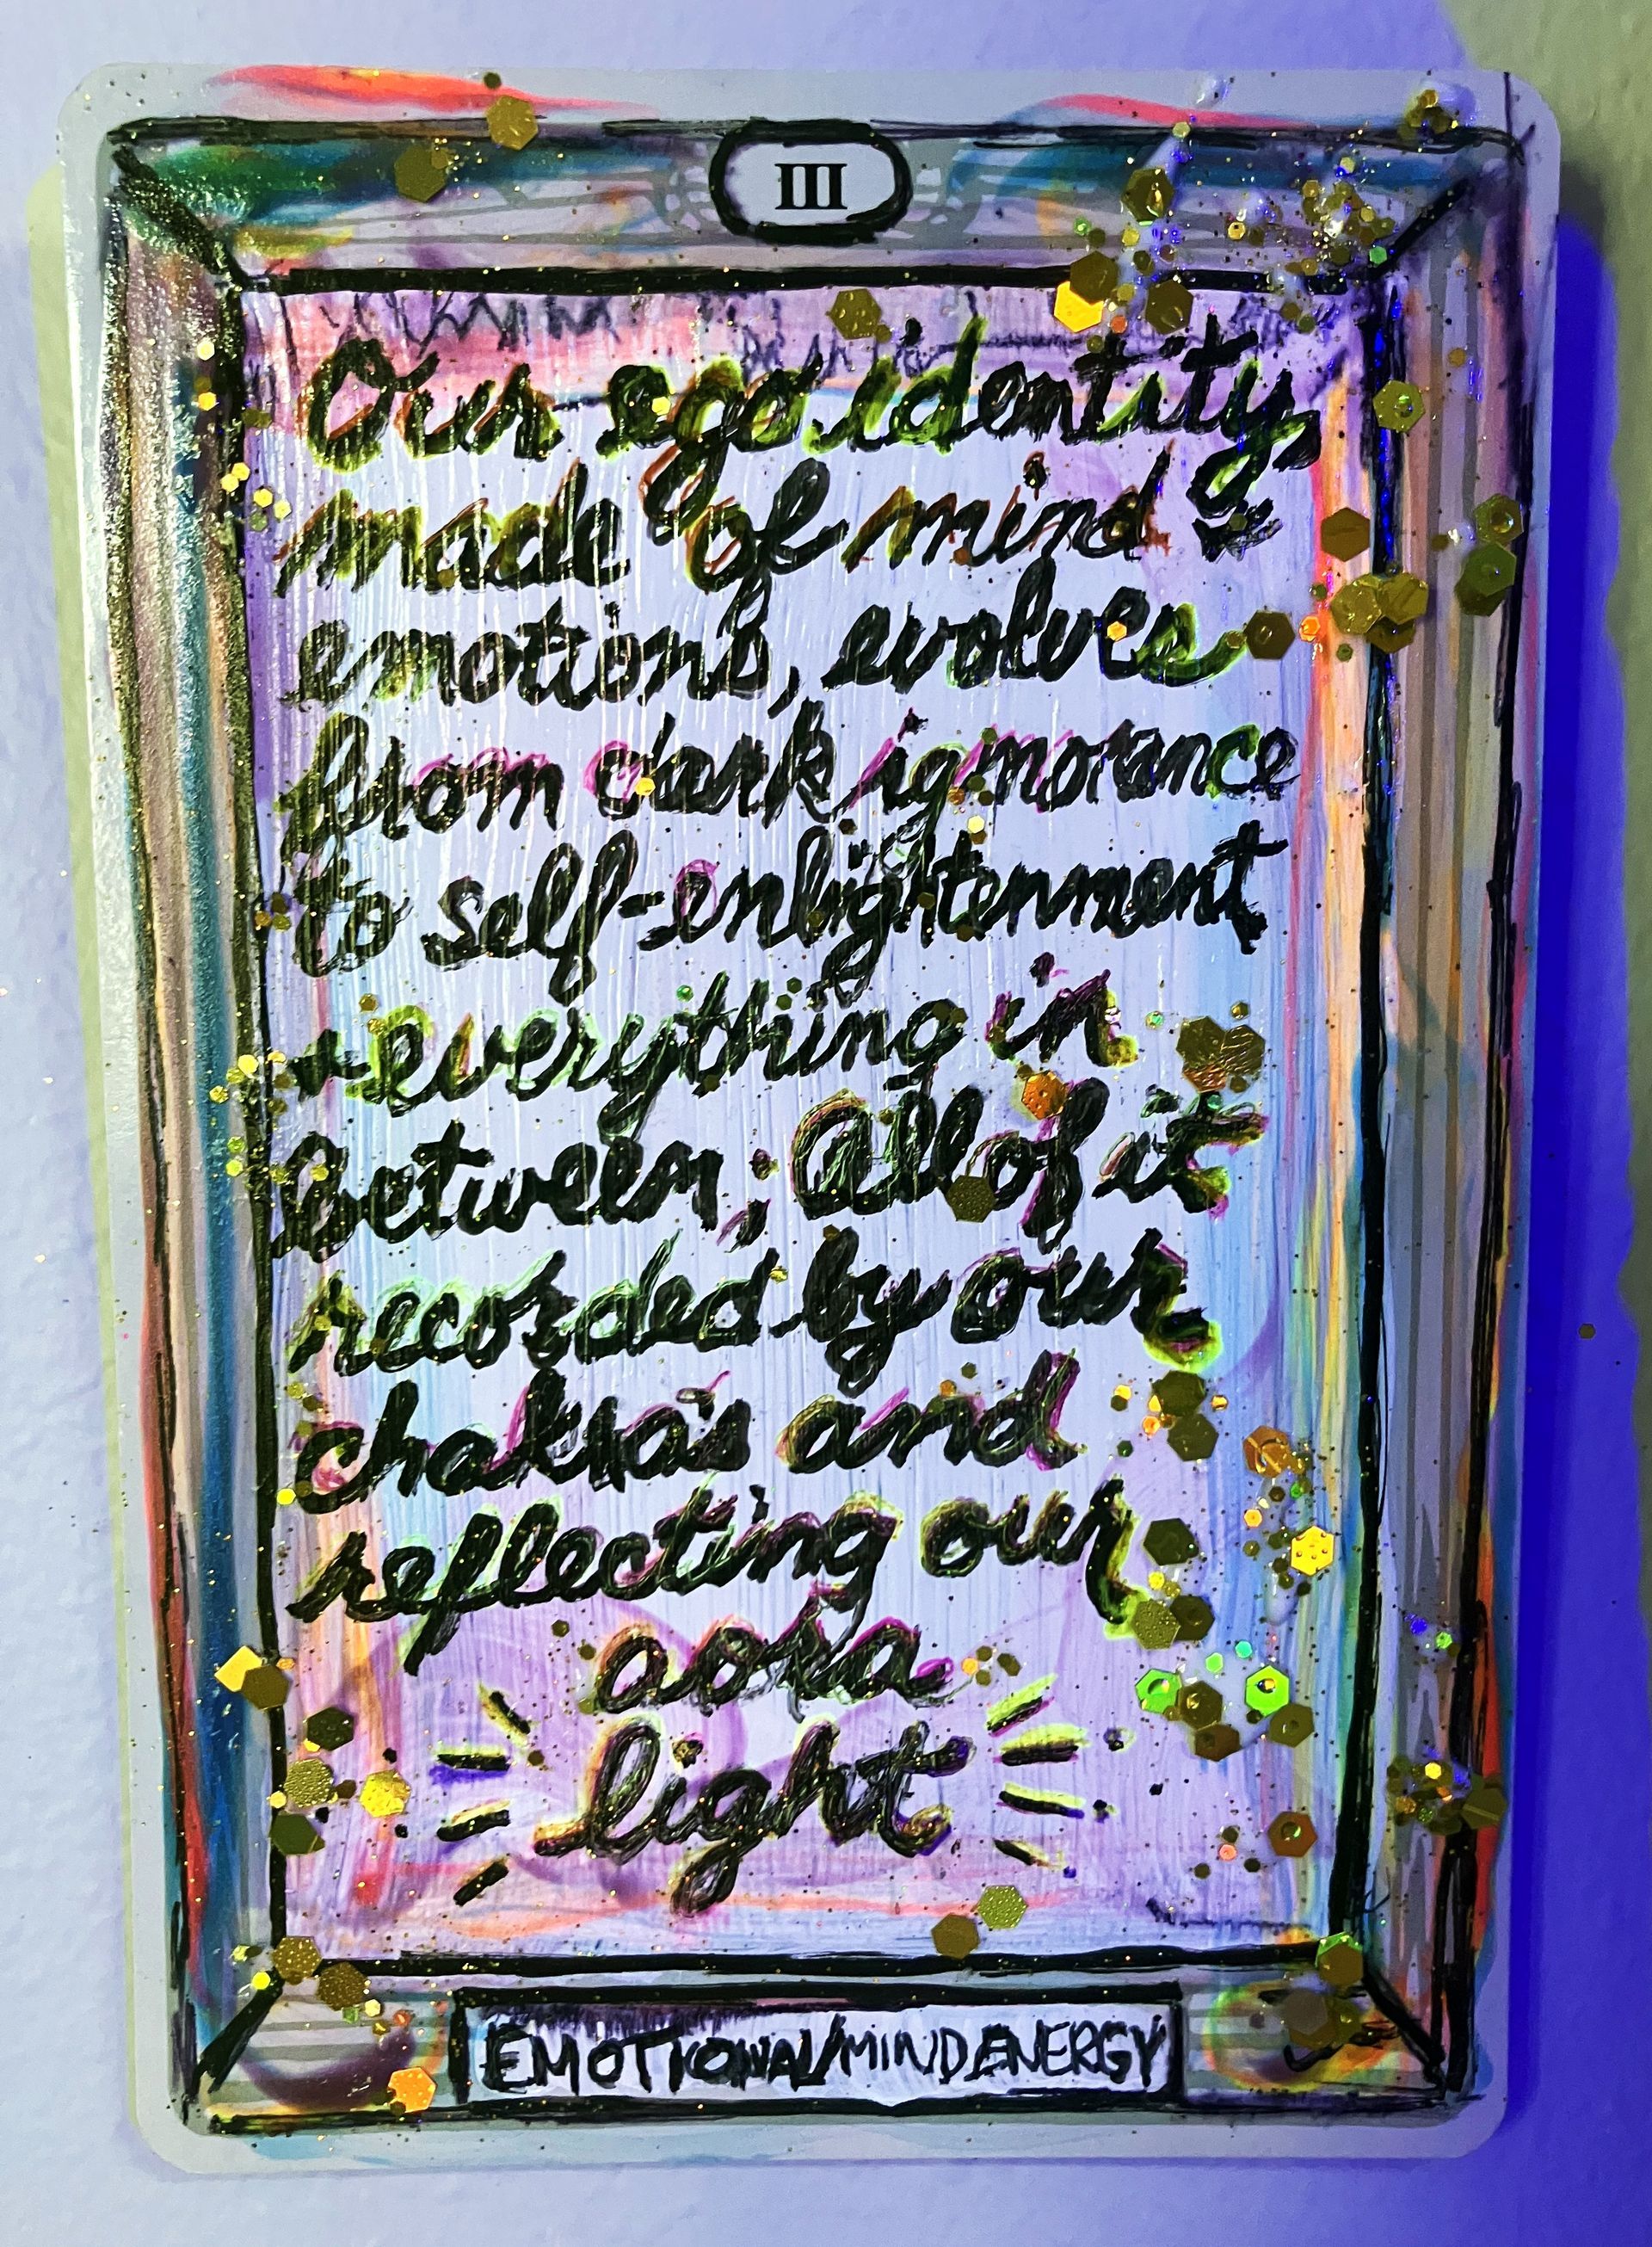 III
Our ego identity,
made of mind &
emotions, evolves
from dark ignorance
to self-enlightenment
+ everything in
between; All of it
recorded by our
chakra's and
reflecting our
aora
light
EMOTIONAL/MIND ENERGY